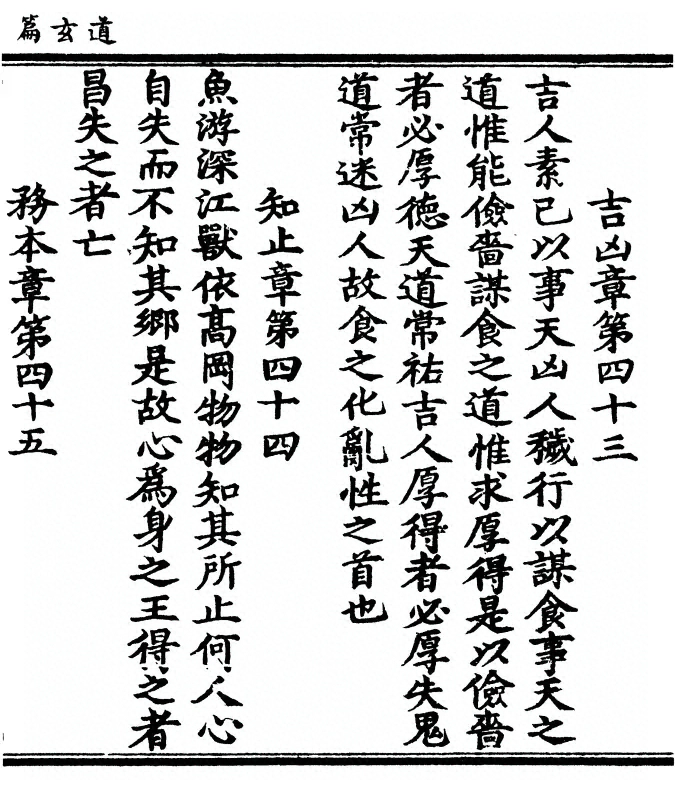 道玄篇
吉凶章第四十三
吉人素己以事天凶人穢行以謀食事天之
道惟能儉嗇謀食之道惟求厚得是以儉嗇
者必厚德天道常祐吉人厚得者必厚失鬼
道常迷凶人故食之化亂性之首也
知止章第四十四
魚游深江獸依高岡物物知其所止何人心
自失而不知其鄉是故心為身之王得之者
昌失之者亡
務本章第四十五